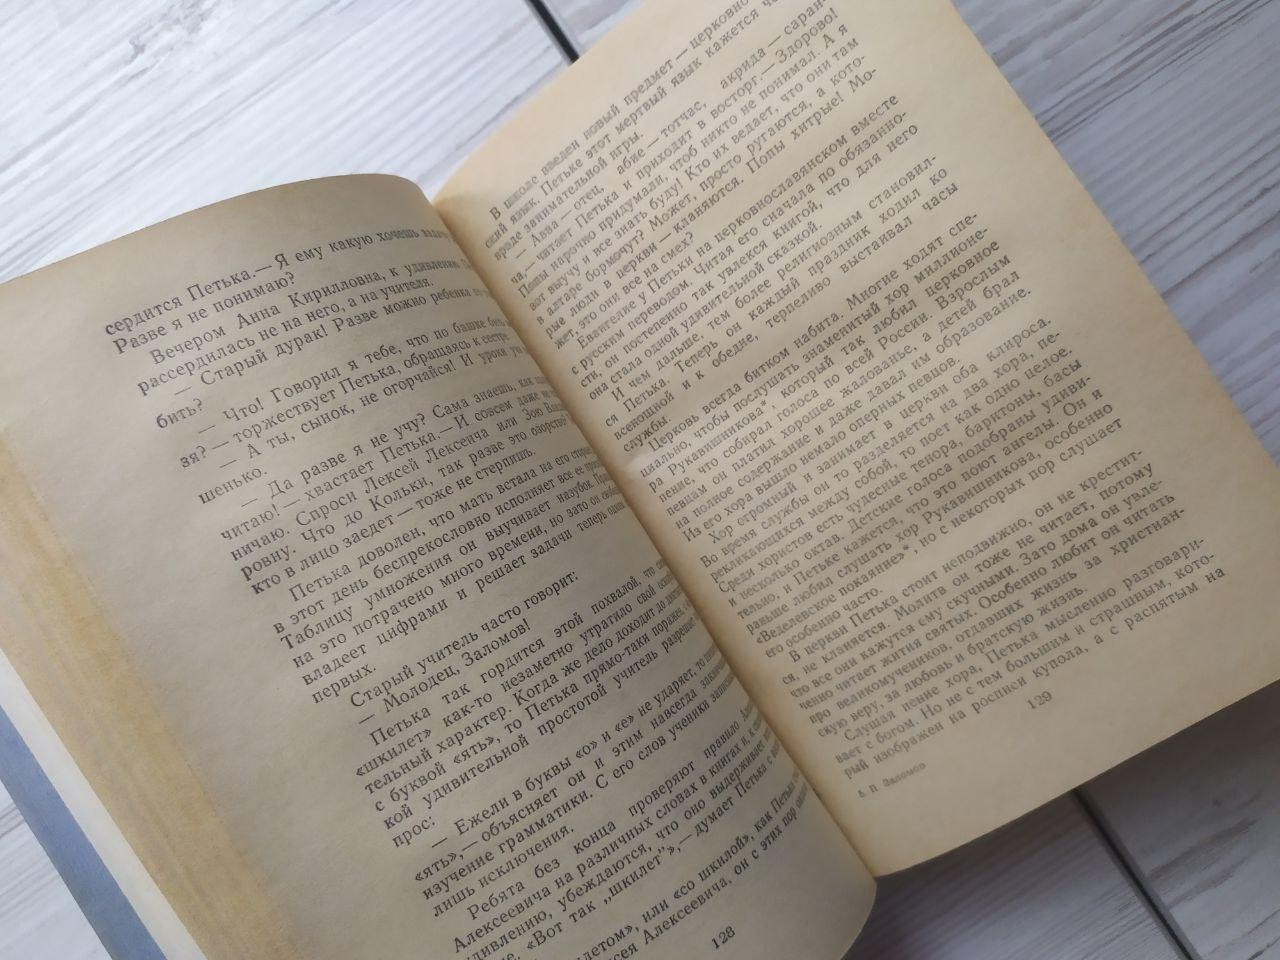 сердится Петька.— Я ему какую хочешь
Разве я не понимаю?
Вечером Анна Кирилловна, к удивлению
рассердилась не на него, а на учителя.
— Старый дурак! Разве можно ребенка по
бить?
— Что! Говорил я тебе, что по башке
зя? — торжествует Петька, обращаясь к сестре.
— А ты, сынок, не огорчайся! И уроки
шенько.
— Да разве я не учу? Сама знаешь, как
читаю! — хвастает Петька.— И совсем даже не
ничаю. Спроси Лексей Лексеича или Зою
ровну. Что до Кольки, так разве это озорство?
кто в лицо заедет — тоже не стерпишь.
Петька доволен, что мать встала на его
в этот день беспрекословно исполняет все ее
Таблицу умножения он выучивает назубок.
на это потрачено много времени, но зато он
владеет цифрами и решает задачи теперь
первых.
Старый учитель часто говорит:
— Молодец, Заломов!
Петька так гордится этой похвалой, что
«шкилет» как-то незаметно утратило свой
тельный характер. Когда же дело доходит до
с буквой «ять», то Петька прямо-таки поражен,
кой удивительной простотой учитель разрешает
прос:
— Ежели в буквы «о» и «е» не ударяет, то
«ять»,— объясняет он и этим навсегда
изучение грамматики. С его слов ученики
лишь исключения.
Ребята без конца проверяют правило
Алексеевича на различных словах в книгах и, к
удивлению, убеждаются, что оно выдерживает
«Вот так „шкилет“»,— думает Петька с
или «со шкилой», как Петька
Алексеевича, он с этих пор
128
В школе введен новый предмет — церковно
ский язык. Петьке этот мертвый язык кажется
вроде занимательной игры.
— Авва — отец, абие — тотчас, акрида — саран-
ча,— читает Петька и приходит в восторг.— Здорово!
Попы нарочно придумали, чтоб никто не понимал. А я
вот выучу и все знать буду! Кто их ведает, что они там
в алтаре бормочут? Может, просто ругаются, а кото-
рые люди в церкви — кланяются. Попы хитрые! Мо-
жет, это они все на смех?
Евангелие у Петьки на церковнославянском вместе
с русским переводом. Читая его сначала по обязанно-
сти, он постепенно так увлекся книгой, что для него
она стала одной удивительной сказкой.
И чем дальше, тем более религиозным становил-
ся Петька. Теперь он каждый праздник ходил ко
всенощной и к обедне, терпеливо выстаивал часы
службы.
Церковь всегда битком набита. Многие ходят спе-
циально, чтобы послушать знаменитый хор миллионе-
ра Рукавишникова*, который так любил церковное
пение, что собирал голоса по всей России. Взрослым
певцам он платил хорошее жалованье, а детей брал
на полное содержание и даже давал им образование.
Из его хора вышло немало оперных певцов.
Хор огромный и занимает в церкви оба клироса.
Во время службы он то разделяется на два хора, пе-
рекликающихся между собой, то поет как одно целое.
Среди хористов есть чудесные тенора, баритоны, басы
и несколько октав. Детские голоса подобраны удиви-
тельно, и Петьке кажется, что это поют ангелы. Он и
раньше любил слушать хор Рукавишникова, особенно
«Веделевское покаяние»*, но с некоторых пор слушает
его особенно часто.
В церкви Петька стоит неподвижно, он не крестит-
ся, не кланяется. Молитв он тоже не читает, потому
что все они кажутся ему скучными. Зато дома он увле-
ченно читает жития святых. Особенно любит он читать
про великомучеников, отдавших жизнь за христиан-
скую веру, за любовь и братскую жизнь.
Слушая пение хора, Петька мысленно разговари-
вает с богом. Но не с тем большим и страшным, кото-
рый изображен на росписи купола, а с распятым на
5 П. Заломов
129